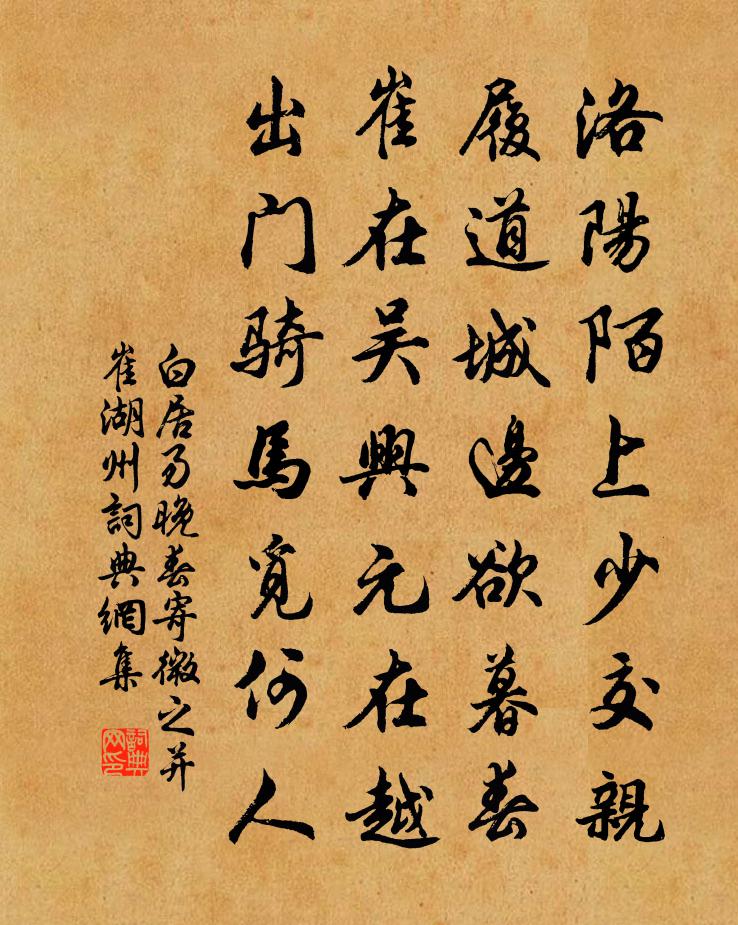 洛陽陌上少交親
履道城邊欲暮春
崔在吴興元在越
出门骑馬覓何人
白居易晚春寄微之并
崔湖州詞典網集
詞典网印